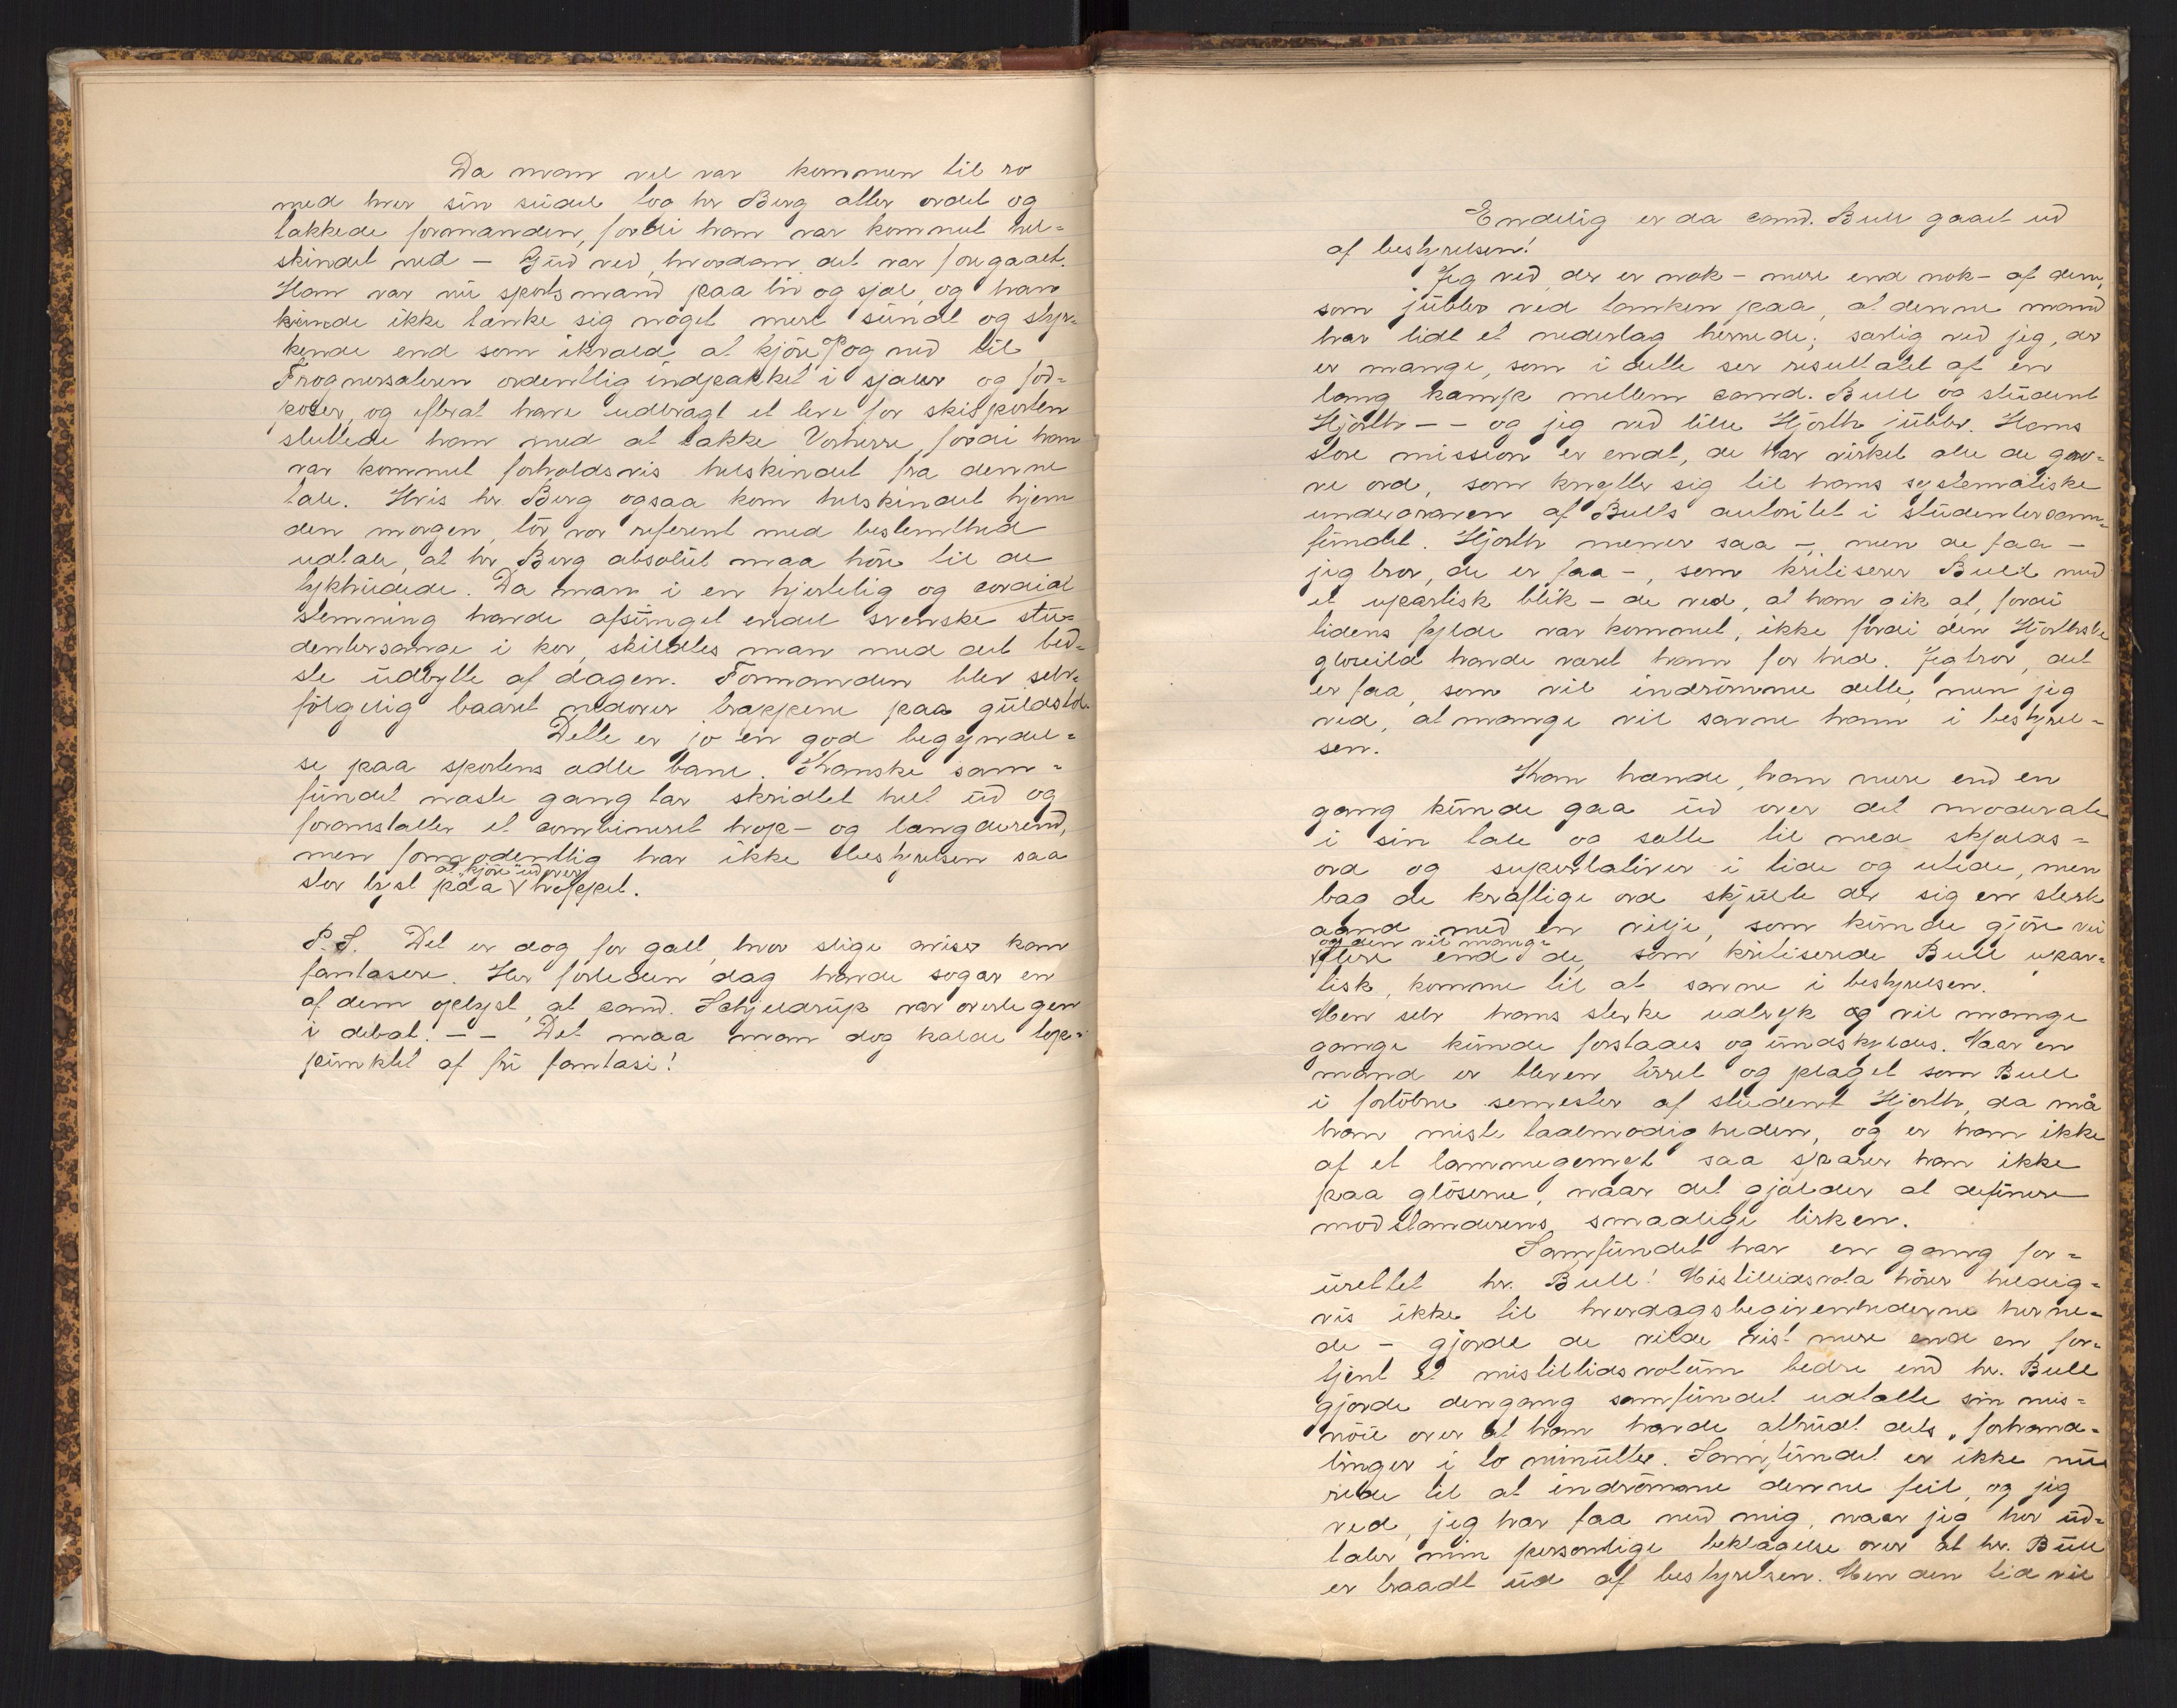 Da man vel var kommen til ro
med hver sin seidel tog hr Berg atter ordet og
takkede formanden, fordi han var kommet hel-
skindet ned — Gud ved, hvordan det var foregaaet.
Han var nu sportsmand paa liv og sjæl, og han
kunde ikke tænke sig noget mere sundt og styr-
kende end som ikvæld at kjöre op og ned til
Frognersæteren ordentlig indpakket i sjaler og fod-
poser, og efterat have udbragt et leve for skisporten
sluttede han med at takke Vorherre, fordi han
var kommet forholdsvis helskindet fra denne
tale. Hvis hr. Berg ogsaa kom helskindet hjem
den morgen, tör vor referent med bestemthed
udtale, at hr Berg absolut maa höre til de
tykhudede. Da man i en hjertelig og cordial
stemning havde afsunget endel svenske stu-
dentersange i kor, skildtes man med det bed-
ste udbytte af dagen. Formanden blev selv-
fölgelig baaret nedover trappene paa guldstol.
Dette er jo en god begyndel-
se paa sportens ædle bane. Kanske sam-
fundet næste gang tar skridtet helt ud og
foranstalter et combineret hop- og langdurend,
men formodentlig har ikke bestyrelsen saa
stor lyst paa at kjöre udover hoppet.
P.S. Det er dog for galt, hvor slige aviser kan
fantasere. Her forleden dag havde sogar en
af dem oplyst, at cand. Schjeldrup var overlegen
i debat. — — Det maa man dog kalde top-
punktet af fri fantasi!
Endelig er da cand. Bull gaaet ud
af bestyrelsen!
Jeg ved, der er nok — mere end nok — af dem,
som jubler ved tanken paa, at denne mand
har lidt et nederlag hernede; særlig ved jeg, der
er mange, som i dette ser resultatet af en
lang kamp mellem cand. Bull og student
Hjorth — — og jeg ved lille Hjorth jubler. Hans
store mission er endt, de har virket alle de gro-
ve ord, som knytter sig til hans systematiske
undergraven af Bulls autoritet i studentersam-
fundet. Hjorth mener saa —, men de faa —
jeg tror, de er faa —, som kritiserer Bull med
et upartisk blik — de ved, at han gik af, fordi
tidens fylde var kommet, ikke fordi den Hjorthske
gloseild havde været ham for hed. Jeg tror, det
er faa, som vil indrömme dette, men jeg
ved, at mange vil savne ham i bestyrel-
sen.
Kan hænde, han mere end en
gang kunde gaa ud over det moderate
i sin tale og sætte til med skjælds-
ord og superlativer i tide og utide, men
bag de kraftige ord skjulte der sig en sterk
aand med en vilje, som kunde gjöre
og den vil mange
flere end de, som kritiserede Bull upar-
tisk, komme til at savne i bestyrelsen.
Men selv hans sterke udtryk og vil mange
gange kunde forstaaes og undskyldes. Naar en
mand er bleven tirret og plaget som Bull
i forlöbne semester af student Hjorth, da må
han miste taalmodigheden, og er han ikke
af et lammegemyt saa sparer han ikke
paa gloserne, naar det gjælder at definere
modstanderens smaalige lirken.
Samfundet har en gang for-
urettet hr. Bull! Mistillidsvota hörer heldig-
vis ikke til hverdagsbegivenhederne herne-
de — gjorde de vilde vist mere end en for-
tjent et mistillidsvotum bedre end hr. Bull
gjorde dengang samfundet udtalte sin mis-
nöie over at han havde afbrudt dets forhand-
linger i to minutter. Samfundet er ikke nu
rede til at indrömme denne feil, og jeg
ved, jeg har faa med mig, naar jeg her ud-
taler min personlige beklagelse over at hr. Bull
er traadt ud af bestyrelsen. Men den tid vil